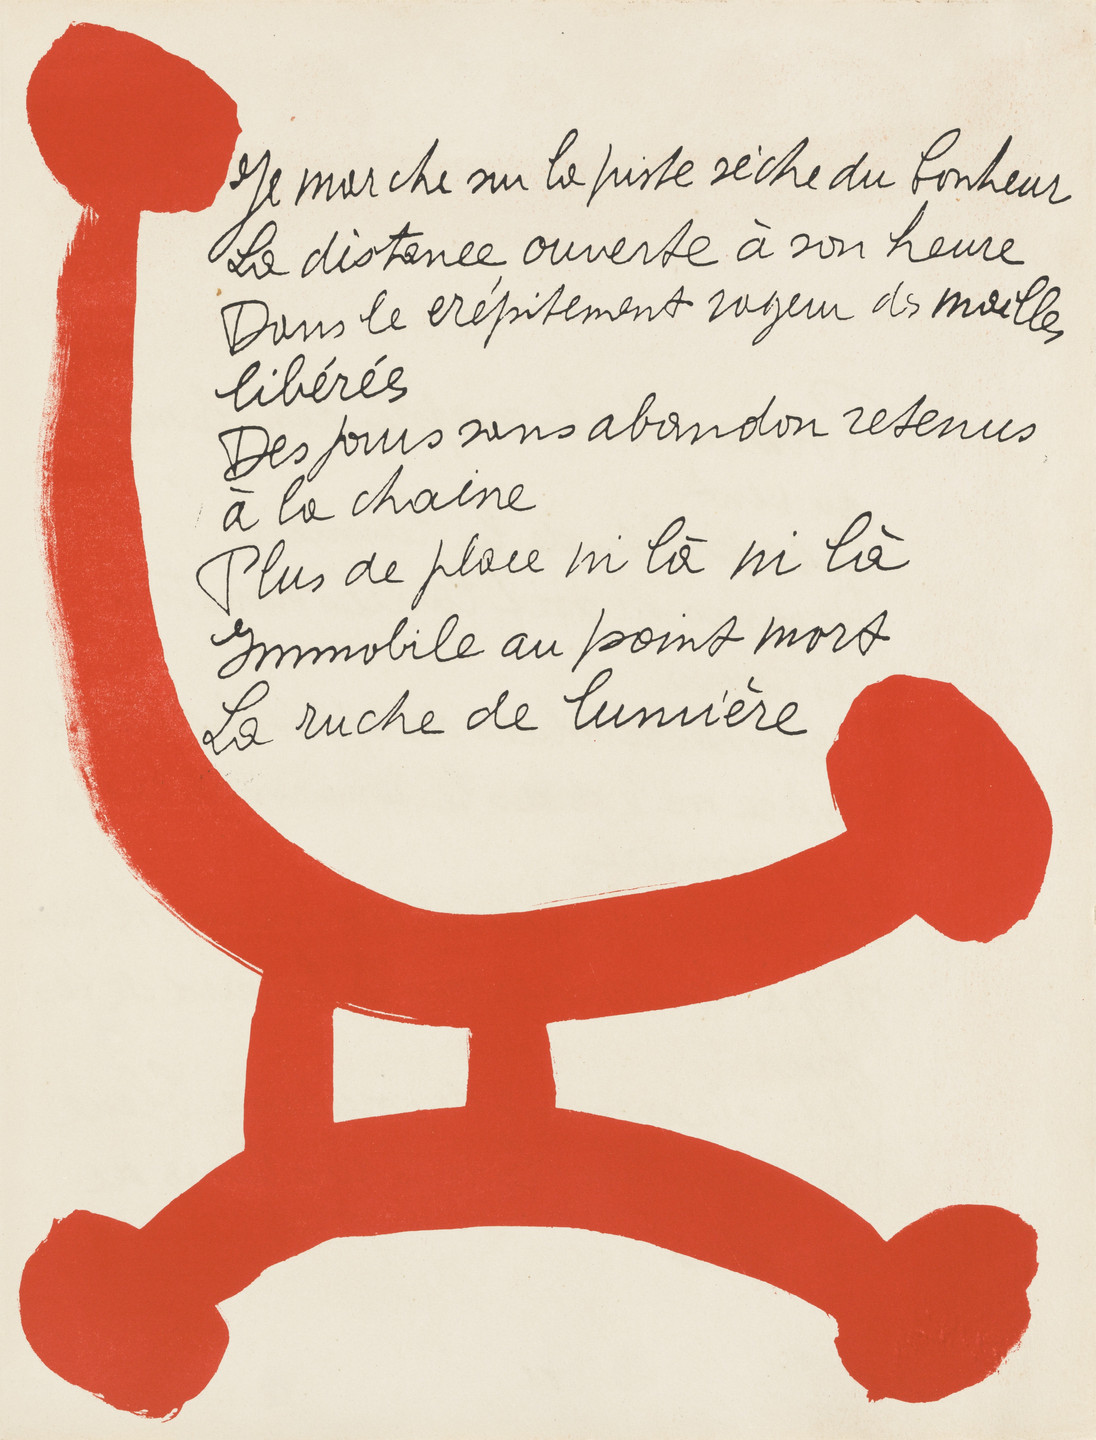 Je marche sur la piste sèche du bonheur
La distance ouverte à son heure
Dans le crépitement rageur des mailles
libérés
Des jours sans abandon retenus
à la chaine
Plus de place ni là ni là
Immobile au point mort
La ruche de lumière